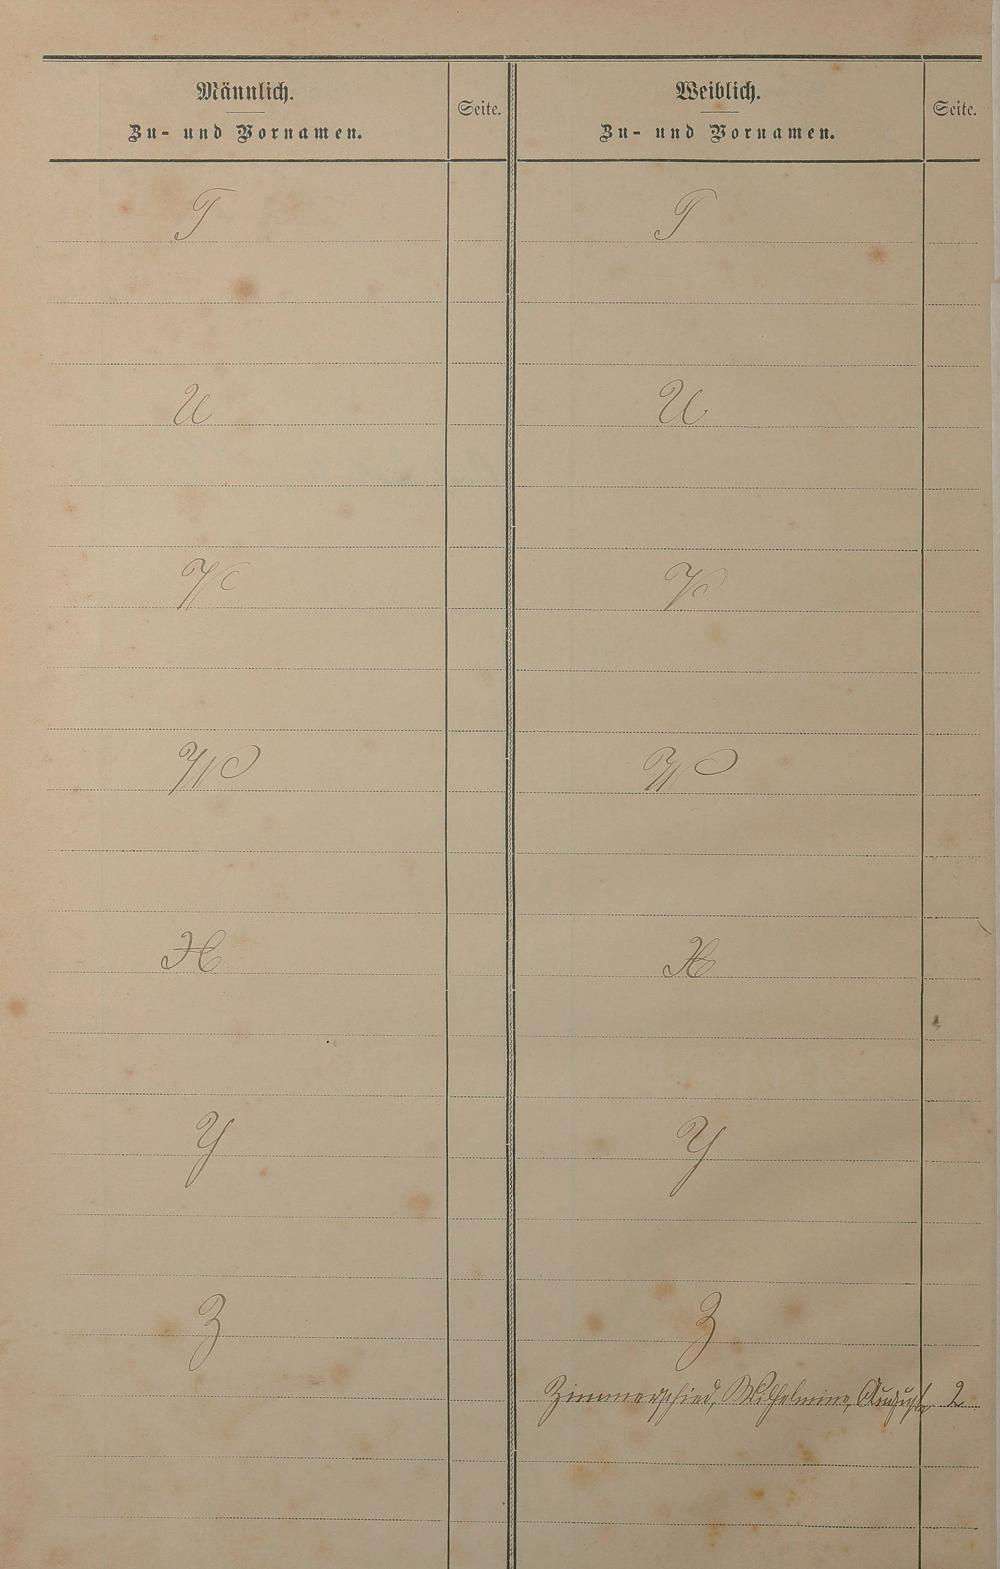 Männlich.
Zu- und Vornamen.
Seite.
Weiblich.
Zu- und Vornamen.
Seite.
T
T
U
U
V
V
W
W
X
X
Y
Y
Z
Z
Zimmerschied, Wilhelmine, Auguste 2